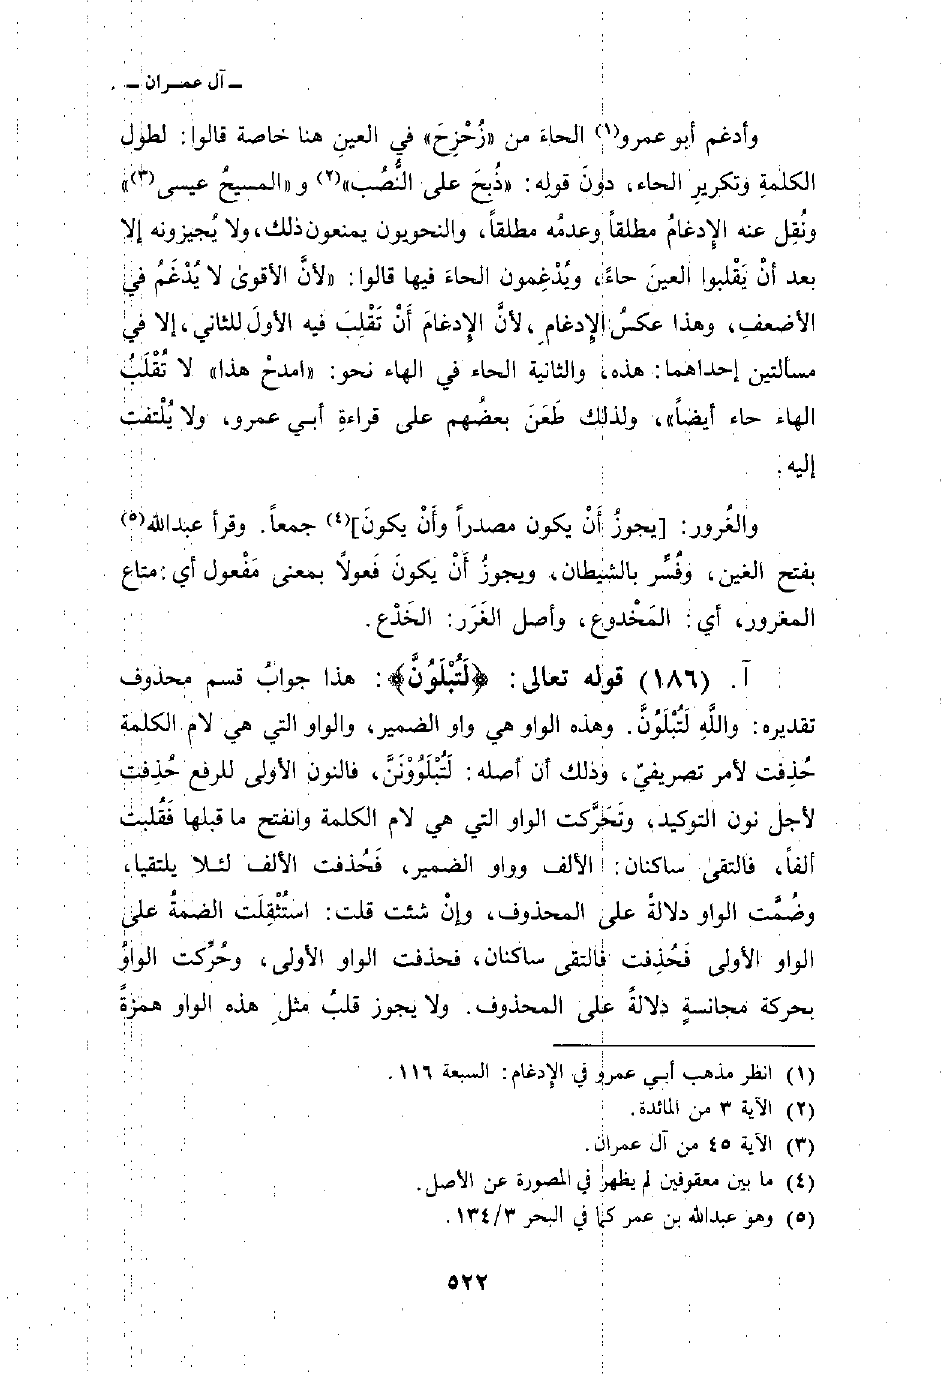 ـ آل عمـران ـ
وأدغم أبو عمرو(١) الحاءَ من «زُحْزِحَ» في العينِ هنا خاصة قالوا: لطول
الكلمةِ وتكريرِ الحاء، دونَ قوله: «ذُبِحَ على النُّصُب»(٢) و «المسيحُ عيسى(٣)»
ونُقِل عنه الإِدغامُ مطلقاً وعدمُه مطلقاً، والنحويون يمنعون ذلك، ولا يُجيزونه إلا
بعد أنْ يَقْلبوا العينَ حاءً، ويُدْغِمون الحاءَ فيها قالوا: «لأنَّ الأقوىٰ لا يُدْغَمُ في
الأضعفِ، وهذا عكسُ الإِدغامِ، لأنَّ الإِدغامَ أَنْ تَقْلِبَ فيه الأولَ للثاني، إلا في
مسألتين إحداهما: هذه، والثانية الحاء في الهاء نحو: «امدحْ هذا» لا تُقْلَبُ
الهاء حاء أيضاً»، ولذلك طَعَنَ بعضُهم على قراءةِ أبـي عمرو، ولا يُلْتفت
إليه.
والغُرور: [يجوزُ أَنْ يكون مصدراً وأَنْ يكونَ](٤) جمعاً. وقرأ عبدالله(٥)
بفتح الغين، وفُسِّر بالشيطان، ويجوزُ أَنْ يكونَ فَعولاً بمعنى مَفْعول أي: متاع
المغرور، أي: المَخْدوع، وأصل الغَرَر: الخَدْع.
آ. (١٨٦) قوله تعالى: ﴿لَتُبْلَوُنَّ﴾: هذا جوابُ قسم محذوف
تقديره: واللَّهِ لَتُبْلَوُنَّ. وهذه الواو هي واو الضمير، والواو التي هي لام الكلمة
حُذِفت لأمر تصريفيّ، وذلك أن أصله: لَتُبْلَوُونَنَّ، فالنون الأولى للرفع حُذِفت
لأجل نون التوكيد، وتَحَرَّكت الواو التي هي لام الكلمة وانفتح ما قبلها فَقُلبت
ألفاً، فالتقى ساكنان: الألف وواو الضمير، فَحُذفت الألف لئـلا يلتقيا،
وضُمَّت الواو دلالةً على المحذوف، وإنْ شئت قلت: استُثْقِلَت الضمةُ على
الواو الأولى فَحُذِفت فالتقى ساكنان، فحذفت الواو الأولى، وحُرِّكت الواوُ
بحركة مجانسةٍ دلالةً على المحذوف. ولا يجوز قلبُ مثلِ هذه الواو همزةً
(١) انظر مذهب أبـي عمرو في الإِدغام: السبعة ١١٦.
(٢) الآية ٣ من المائدة.
(٣) الآية ٤٥ من آل عمران.
(٤) ما بين معقوفين لم يظهر في المصورة عن الأصل.
(٥) وهو عبدالله بن عمر كما في البحر ١٣٤/٣.
٥٢٢